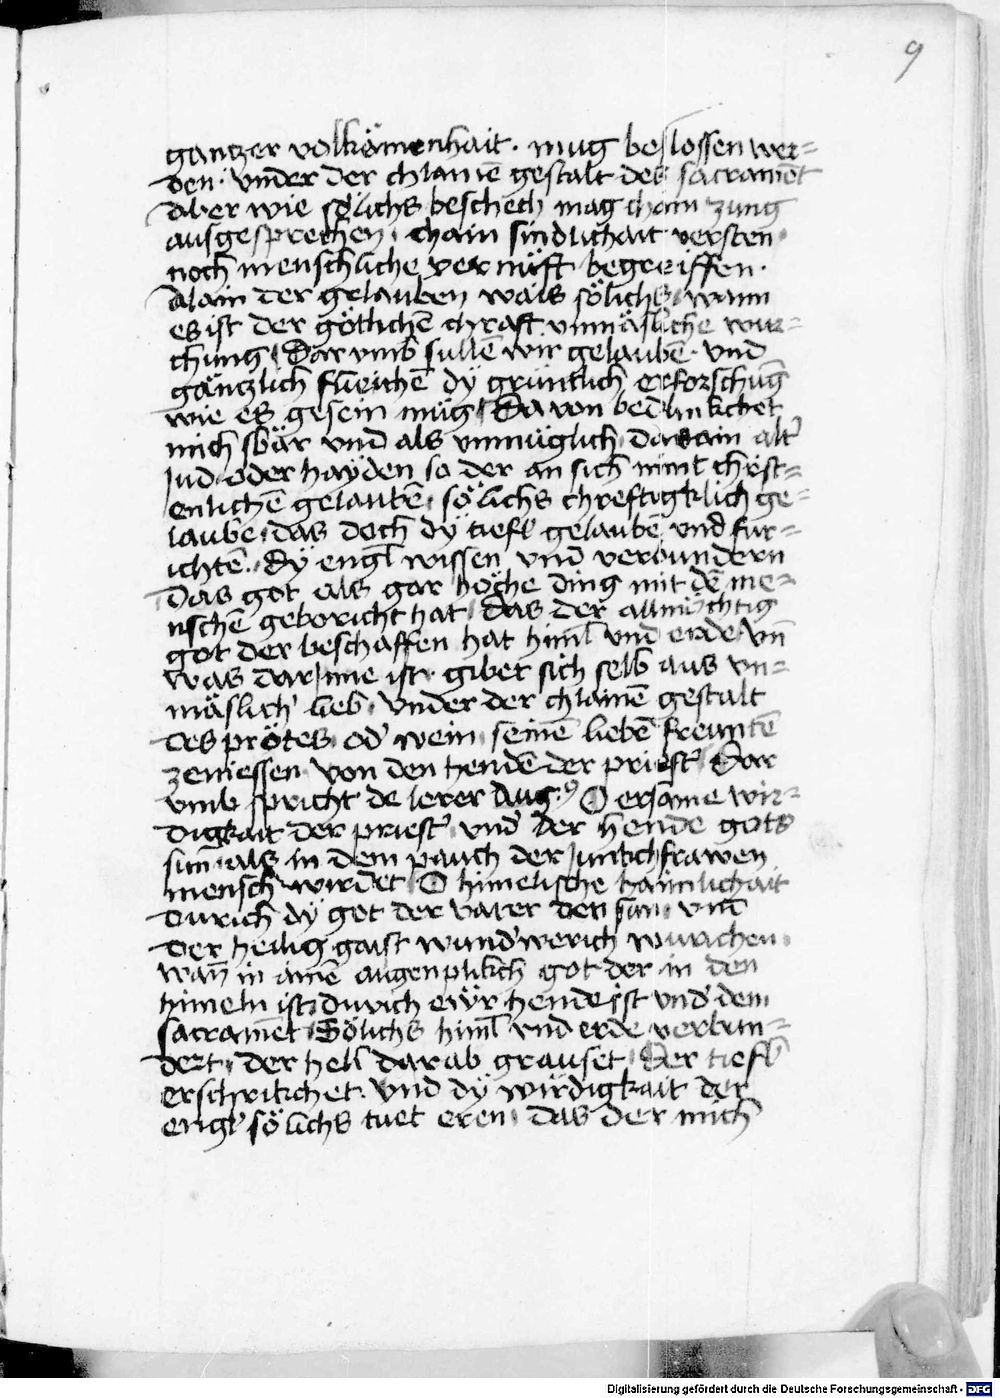 9
gantzer volkömenhait · mug beslossen wer=
den · vnder der chlainē gestalt des sacramēt
Aber wie sölichs beschech mag chain zung
ausgesprechen · chain sindlichait versten ·
noch menschliche vernüft begreiffen ·
Alain der gelauben wais sölichs · wann
es ist der götlichē chraft vnmäsliche wur=
chung · Darvmb süllē wir gelaubē · vnd
gäntzlich flieichē dÿ grüntlich erforschūg
wie es gesein müg · Da von bedunkchet
mich sbär vnd als vnmüglich · das ain alt'
Jud · oder hayden so der an sich nimt christ=
enlichē gelaubē · sölichs chreftigklich ge=
laube · das doch dÿ tiefl gelaubē vnd für=
ichtē · dÿ engl wissen vnd verbundern
Das got als gar höche ding mit dē me=
nschē geboricht hat · das der allmächtig
got der beschaffen hat himl vnd erde vn̄
was darJnne ist · gibet sich selb aus vn=
mäslich' lieb · vnder der chlainē gestalt
des prötes · od' wein · seinē liebē freuntē
zeniessen · von den hendē der priest' · Dar
vmb spricht de lerer Aug:9 O ersame wir=
digkait der priest' · vnd der hende gots
sun · als in dem pauch der Junkchfrawen
mensch wirdet · O himelische haimlichait
durich dÿ got der vater den sun · vnd
Der heilig gaist wund'werich wurichen ·
wan̄ in ainē augenplikch got der in den
himeln ist · durich ewr hende ist vnd' dem
sacramēt · Sölichs himl vnd erde verbun=
dert · der hell darab grauset · Der tiefl
erschrikchet · vnd dÿ wirdigkait der
engl' sölichs tuet eren · das der mich
Digitalisierung gefördert durch die Deutsche Forschungsgemeinschaft - DFG